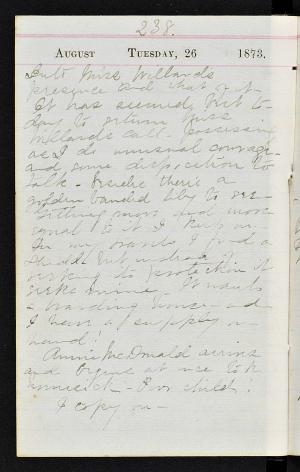 238.
August Tuesday, 26 1873.
into Miss Willard's
presence and that
It has seemed but to
day to return Miss
Willard's call - possessing
as I do unusual courage
and some disposition to
talk - Besides there's a
golden banded lily to see -
more and more
equal to it I keep on.
In my I find a
but instead of
seeking to protection it
seeks mine. It wants
a boarding house - and
I have a supply on
hand!
Annie McDonald arrives
and begins at once to be
homesick - Poor child!
I copy on -